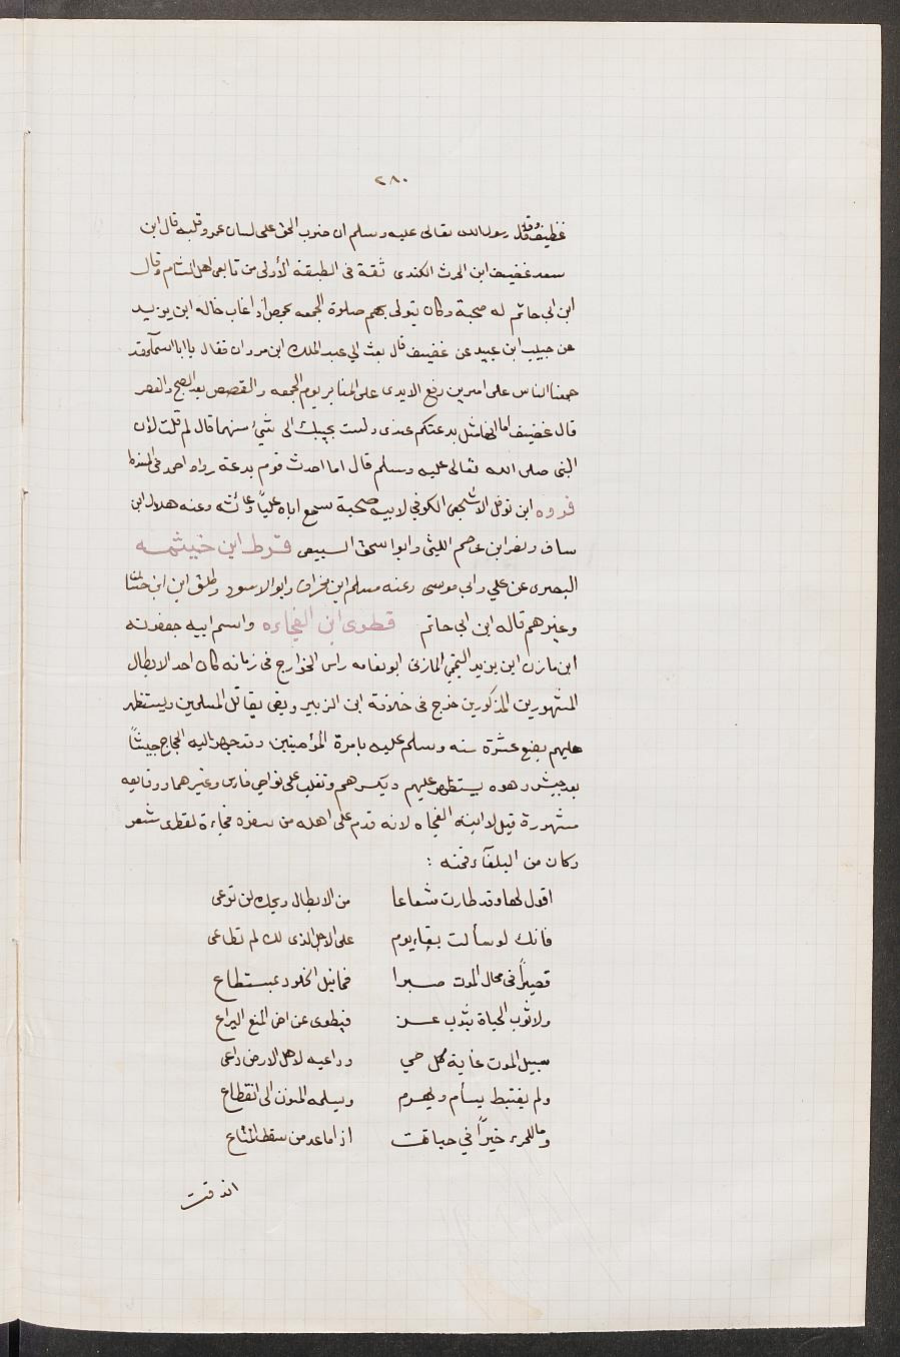 ٢٨٠
غضيف وقد قال رسول الله تعالى عليه وسلم ان ضرب الحق على لسان عمر وقلبه قال ابن
سعد غضيف ابن الحرث الكندى ثقة فى الطبقة الأولى من تابعى اهل الشام وقال
ابن ابى حاتم له صحبة وكان يتولى بهم صلوة الجمعه بحمص اذا غاب خاله ابن يزيد
عن حبيب ابن عبيد عن غضيف قال بعث الي عبد الملك ابن مروان فقال يا ابا اسمآ وقد
جمعنا الناس على امرين رفع الايدى على المنابر يوم الجمعه والقصص بعد الصبح والعصر
قال غضيف اما انها مثل بدعتكم عندى ولست بجيبك الى شئ منهما قال لم قلت لأن
النبى صلى الله تعالى عليه وسلم قال ما احدث قوم بدعة رواه احمد فى المسند
فروه ابن نوفل الاشجعى الكوفي لابيه صحبة سمع اباه عليًا وعائشه وعنه هلال ابن
ساف ونصر ابن عاصم الليثى وابوا سحق السبيعى قرط ابن خيثمه
البصرى عن علي وابى موسى وعنه مسلم ابن مخراق وابو الاسود وطلق ابن ابن خشا
وغيرهم قاله ابن ابى حاتم قطرى ابن الفجاءه واسم ابيه جعفونه
ابن مازن ابن يزيد التميمى المازنى ابو نعامه راس الخوارج فى زمانه كان احد الابطال
المشهورين المذكورين خرج فى خلافة ابن الزبير وبقى يقاتل المسلمين ويستظهر
عليهم بضع عشرة سنه وسلم عليه بامرة المؤمنين وتد جهز اليه الحجاج جيشًا
بعد جيش وهوه يستظهر عليهم ويكسرهم وتغلب على نواحي فارس وغيرهما ووقايعه
مشهورة قيل لابيه الفجاه لانه قدم على اهله من سفره فجاءة لقطرى شعر
وكان من البلغآء فمنه :
اقول لها وقد طارت شعاعا من الابطال ويحك لن ترعى
فانك لو سألت بقاء يوم على الاجل الذى لك لم تطاعى
فصبراً فى مجال الموت صبرا فما نيل الخلود بمستطاع
ولا ثوب الحياة بثوب عز فيطوى عن اخ الخنع اليراع
سبيل الموت غاية كل حي وداعيه لاهل الارض داعى
ولم يغتبط يسأم ويهرم ويسلمه المنون الى انقطاع
وما للمرء خيراً في حياة اذا ما عد من سقط المتاع